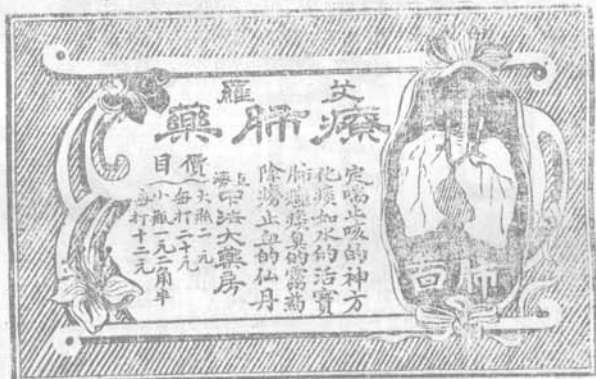 艾羅
療肺藥
定喘止咳的神方
化痰如水的活寶
肺痿臭的靈藥
除癆止血的仙丹
上海中法大藥房
價目
大瓶二元
每打二十元
小瓶一元二角半
每打十二元
肺